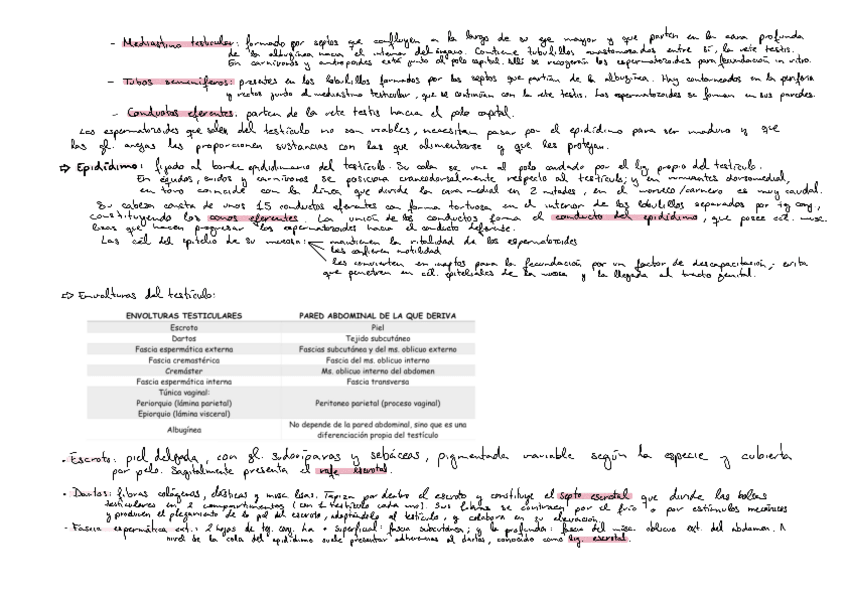 - Mediastino testicular: formado por septos que confluyen a lo largo de su eje mayor y que parten en la cara profunda
de la albugínea hacia el interior del órgano. Contiene tubulillos anastomosados entre sí, la rete testis.
En carnívoros y antropoides está junto al polo capital. Allí se recogerán los espermatozoides para fecundación in vitro.
- Tubos seminíferos: presentes en los lobulillos formados por los septos que partían de la albugínea. Hay contorneados en la periferia
y rectos junto al mediastino testicular, que se continúan con la rete testis. Los espermatozoides se forman en sus paredes.
- Conductos eferentes: parten de la rete testis hacia el polo capital.
Los espermatozoides que salen del testículo no son viables, necesitan pasar por el epidídimo para ser maduro y que
las gl. anejas les proporcionen sustancias con las que alimentarse y que les protejan.
⇒ Epidídimo: fijado al borde epididimario del testículo. Su cola se une al polo caudado por el lig propio del testículo.
En équidos, suidos y carnívoros se posiciona craneodorsalmente respecto al testículo; y en rumiantes dorsomedial,
en toro coincide con la línea que divide la cara medial en 2 mitades, en el morueco/carnero es muy caudal.
Su cabeza consta de unos 15 conductos eferentes con forma tortuosa en el interior de los lobulillos separados por tej conj,
constituyendo los conos eferentes. La unión de los conductos forma el conducto del epidídimo, que posee cél. musc.
lisas que hacen progresar los espermatozoides hacia el conducto deferente.
Las cél del epitelio de su mucosa: mantienen la vitalidad de los espermatozoides
les confieren motilidad
les convierten en inaptos para la fecundación por un factor de descapacitación, evita
que penetren en cél. epiteliales de la mucosa y la llegada al tracto genital.
⇒ Envolturas del testículo:
ENVOLTURAS TESTICULARES PARED ABDOMINAL DE LA QUE DERIVA
Escroto Piel
Dartos Tejido subcutáneo
Fascia espermática externa Fascias subcutánea y del ms. oblicuo externo
Fascia cremastérica Fascia del ms. oblicuo interno
Cremáster Ms. oblicuo interno del abdomen
Fascia espermática interna Fascia transversa
Túnica vaginal:
Periorquio (lámina parietal) Peritoneo parietal (proceso vaginal)
Epiorquio (lámina visceral)
Albugínea No depende de la pared abdominal, sino que es una
diferenciación propia del testículo
- Escroto: piel delgada, con gl. sudoríparas y sebáceas, pigmentada variable según la especie y cubierta
por pelo. Sagitalmente presenta el rafe escrotal.
- Dartos: fibras colágenas, elásticas y musc lisas. Tapiza por dentro el escroto y constituye el septo escrotal que divide las bolsas
testiculares en 2 compartimentos (con 1 testículo cada uno). Sus fibras se contraen por el frío o por estímulos mecánicos
y producen el plegamiento de la piel del escroto, adaptándolo al testículo, y colabora en su elevación.
- Fascia espermática ext.: 2 hojas de tej. conj. la + superficial: fascia subcutánea; y la profunda: fascia del músc. oblicuo ext. del abdomen. A
nivel de la cola del epidídimo suele presentar adherencias al dartos, conocido como lig. escrotal.